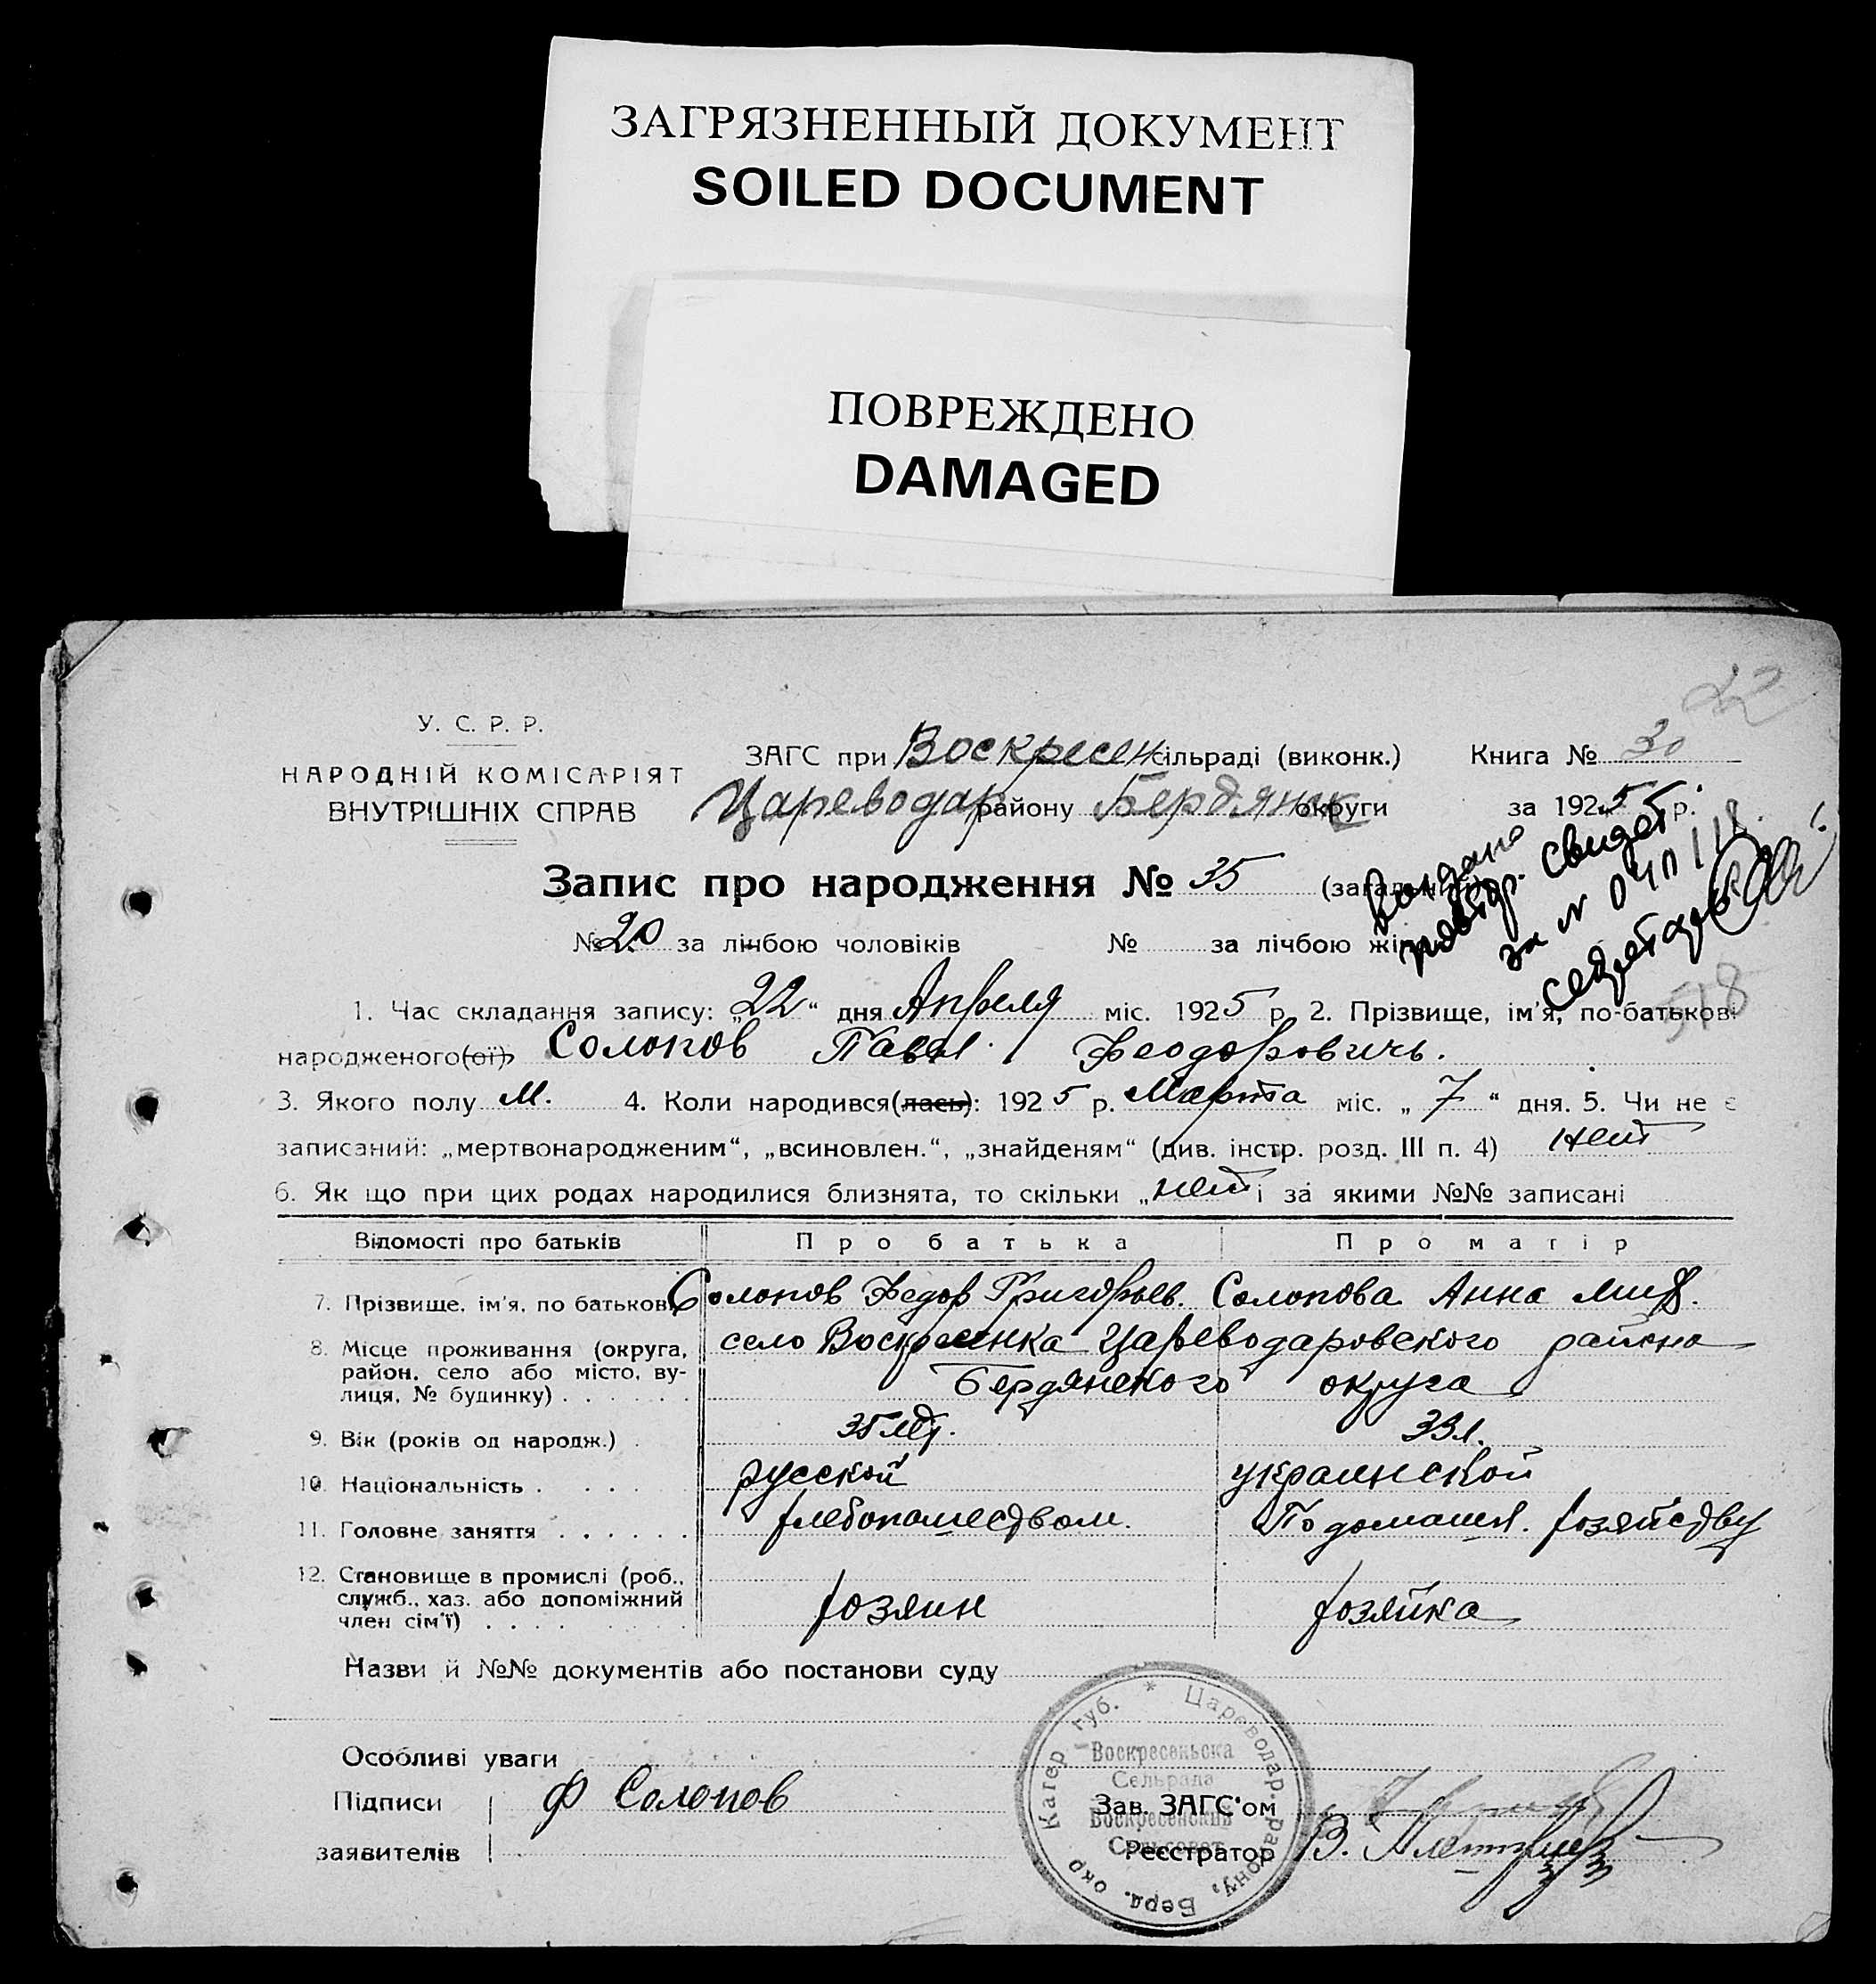 ЗАГРЯЗНЕННЫЙ ДОКУМЕНТ
SOILED DOCUMENT
ПОВРЕЖДЕНО
DAMAGED
У. С. Р. Р.
НАРОДНІЙ КОМІСАРІЯТ
ВНУТРІШНІХ СПРАВ
ЗАГС при Воскресен сільраді (виконк.) Книга № 30
Цареводар району Бердянск округи за 1925 р.
Запис про народження № 35 (загальний)
№ 20 за лічбою чоловіків № за лічбою жін
свидет
518
1. Час складання запису: „22“ дня Апреля міс. 1925 р. 2. Прізвище, ім'я, по-батькові
народженого(ої) Солопов Павел Феодоровичь.
3. Якого полу М. 4. Коли народився(лась): 1925 р. Марта міс. „7“ дня. 5. Чи не є
записаний: „мертвонародженим“, „всиновлен.“, „знайденям“ (див. інстр. розд. III п. 4) нет
6. Як що при цих родах народилися близнята, то скільки „нет і за якими №№ записані
Відомості про батьків Про батька Про матір
7. Прізвище, ім'я, по батькові Солопов Федор Григорьев. Солопова Анна
8. Місце проживання (округа, район, село або місто, вулиця, № будинку) . . . . . . село Воскресенка Цареводаровского района
Бердянского округа
9. Вік (років од народж.) . 35 лет. 33 л.
10. Національність . . . . русской украинской
11. Головне заняття . . . . . . хлебопашеством. По домашн. хозяйству
12. Становище в промислі (роб., служб., хаз. або допоміжний член сім'ї) . . . . хозяин хозяйка
Назви й №№ документів або постанови суду
Особливі уваги
Підписи
заявителів
Ф Солопов
Катер губ. * Цареводар. району, Берд. окр
Воскресеньска
Сельрада
Воскресенский
Сельсовет
Зав. ЗАГС'ом
Реєстратор В.